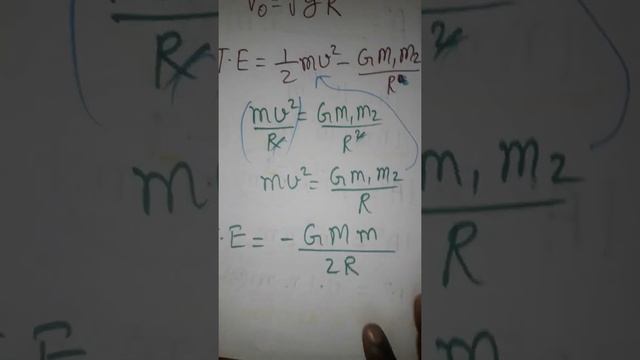 V₀ = √gR
T.E = 1/2 mv² - Gm₁m₂/R
mv²/R = Gm₁m₂/R²
mv² = Gm₁m₂/R
T.E = - GMm/2R